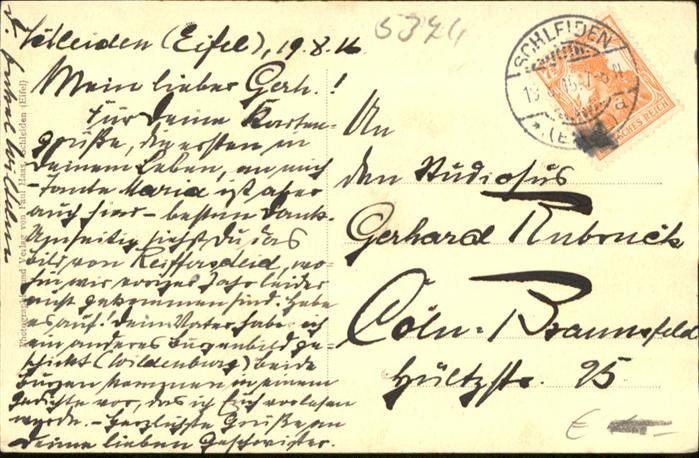 5324
Schleiden (Eifel), 19.8.16
Mein lieber Gerh.!
Für Deine Karten-
grüße, die ersten in
Deinem Leben, an mich
- Tante Maria ist aber
auch hier - besten Dank.
Umseitig siehst Du das
Bild von Reifferscheid, wo-
hin wir voriges Jahr leider
nicht gekommen sind. Hebe
es auf! Deinem Vater habe ich
ein anderes Burgenbild ge-
schickt (Wildenburg) beide
Burgen kommen in einem
Gedichte vor, das ich Euch vorlesen
werde. - Herzlichste Grüße an
Deine lieben Geschwister.
D. Onkel Wilhelm
Photographie und Verlag von Paul Haas, Schleiden (Eifel)
SCHLEIDEN
DEUTSCHES REICH
An
den Studiosus
Gerhard Rubruck
Cöln-Braunsfeld
Hültzstr. 25